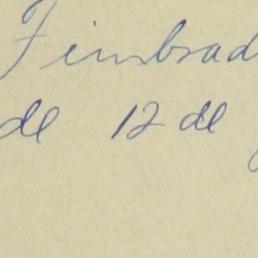 Fimbrad
de 12 de